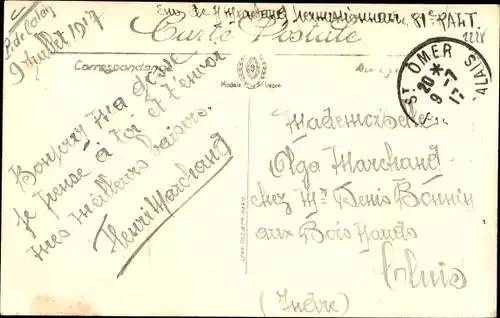 9 Juillet 1917
Carte Postale
Correspondance
Bonjour ma
Je pense à toi et t'envoi
mes meilleurs baisers.
Henri Marchand
ST OMER
20 *
9 -7
17
Mademoiselle
Olga Marchand
chez Mr Denis Bonnin
aux Bois Hauts
Cluis
(Indre)